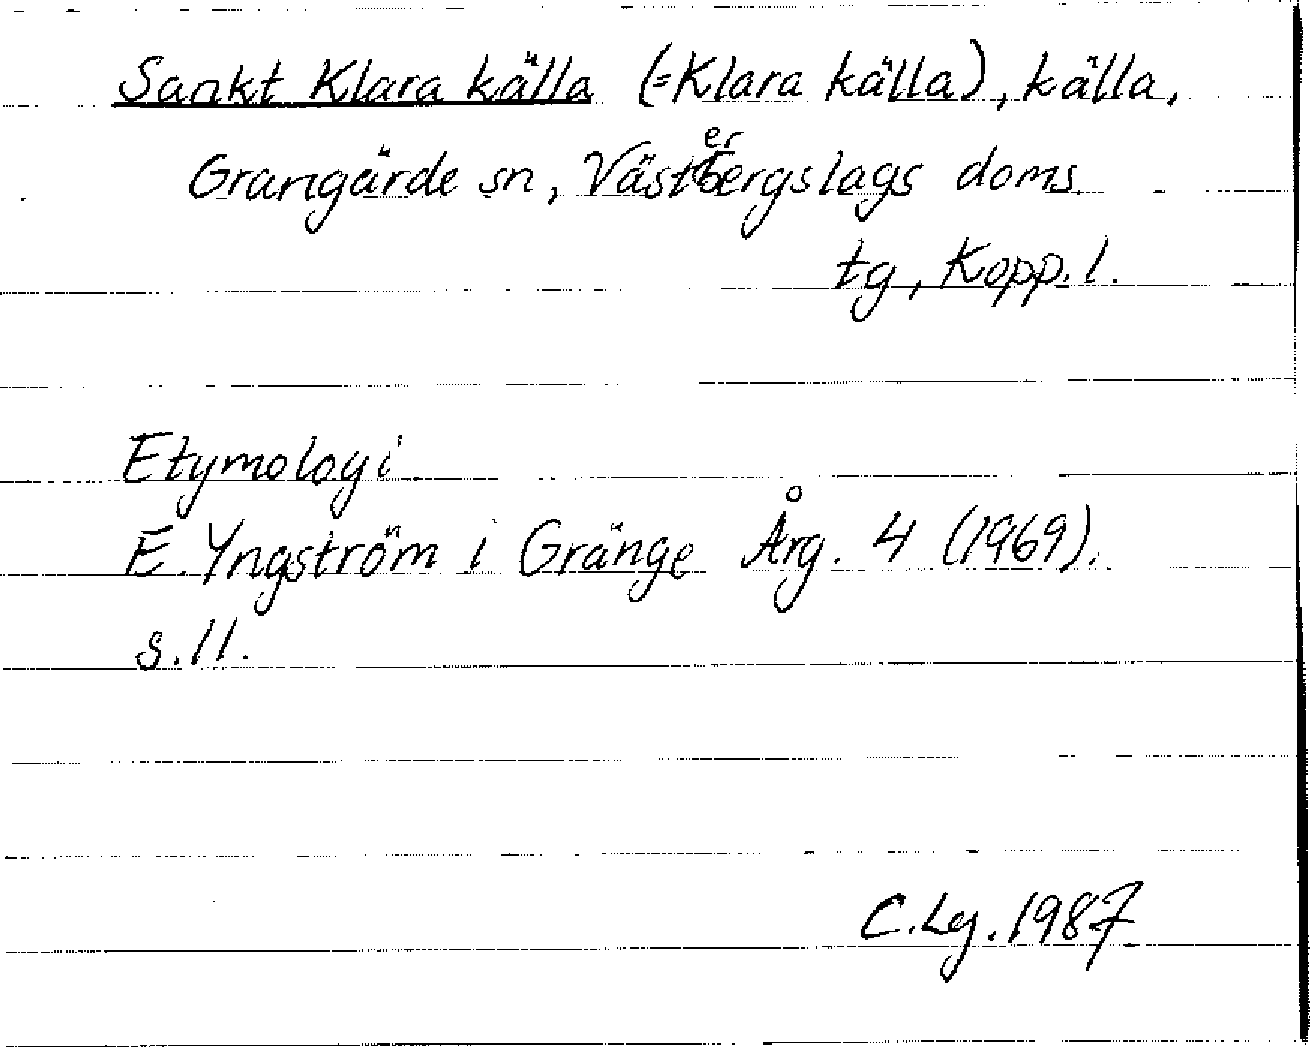 Sankt Klara källa (=Klara källa), källa,
Grangärde sn, Västerbergslags doms
tg, Kopp. l.
Etymologi
E. Yngström i Gränge Årg. 4 (1969).
s. 11.
C. Lg. 1987